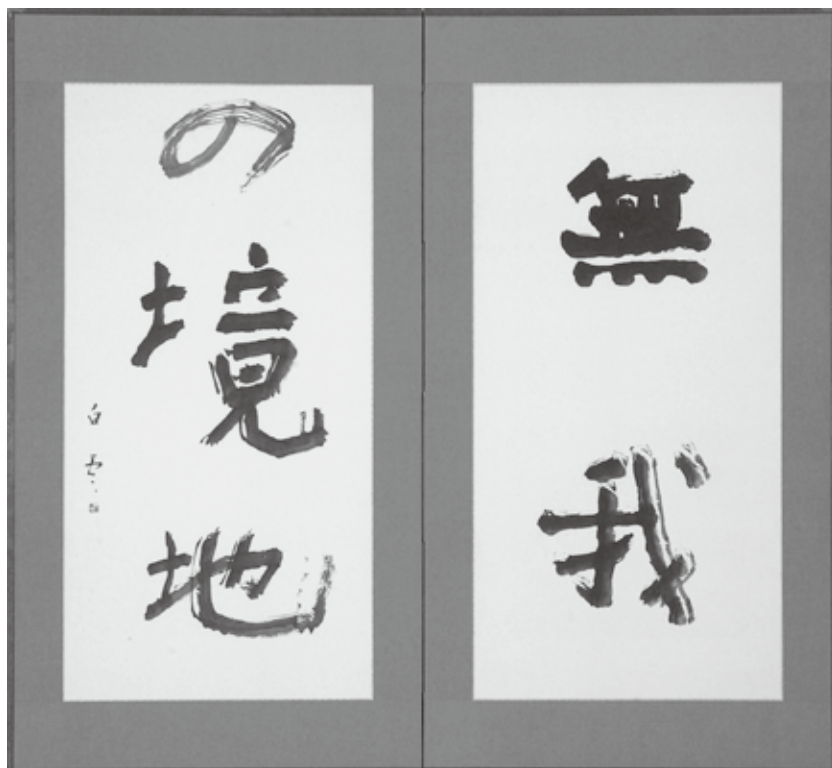 無我
の境地
白雲